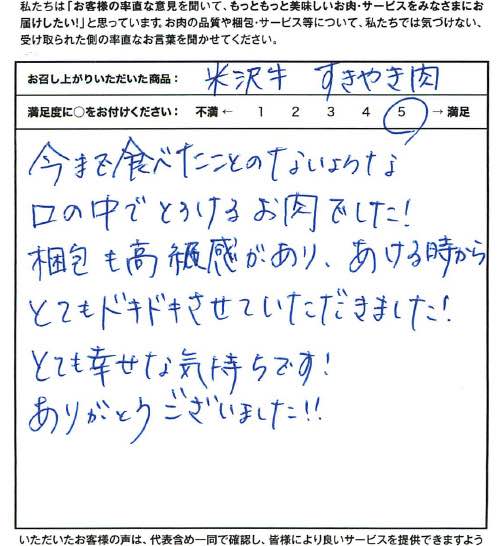 私たちは「お客様の率直な意見を聞いて、もっともっと美味しいお肉・サービスをみなさまにお
届けしたい!」と思っています。お肉の品質や梱包・サービス等について、私たちでは気づけない、
受け取られた側の率直なお言葉を聞かせてください。
お召し上がりいただいた商品： 米沢牛 すきやき肉
満足度に○をお付けください： 不満 ← 1 2 3 4 5 → 満足
今まで食べたことのないような
口の中でとろけるお肉でした!
梱包も高級感があり、あける時から
とてもドキドキさせていただきました!
とても幸せな気持ちです!
ありがとうございました!!
いただいたお客様の声は、代表含め一同で確認し、皆様により良いサービスを提供できますよう